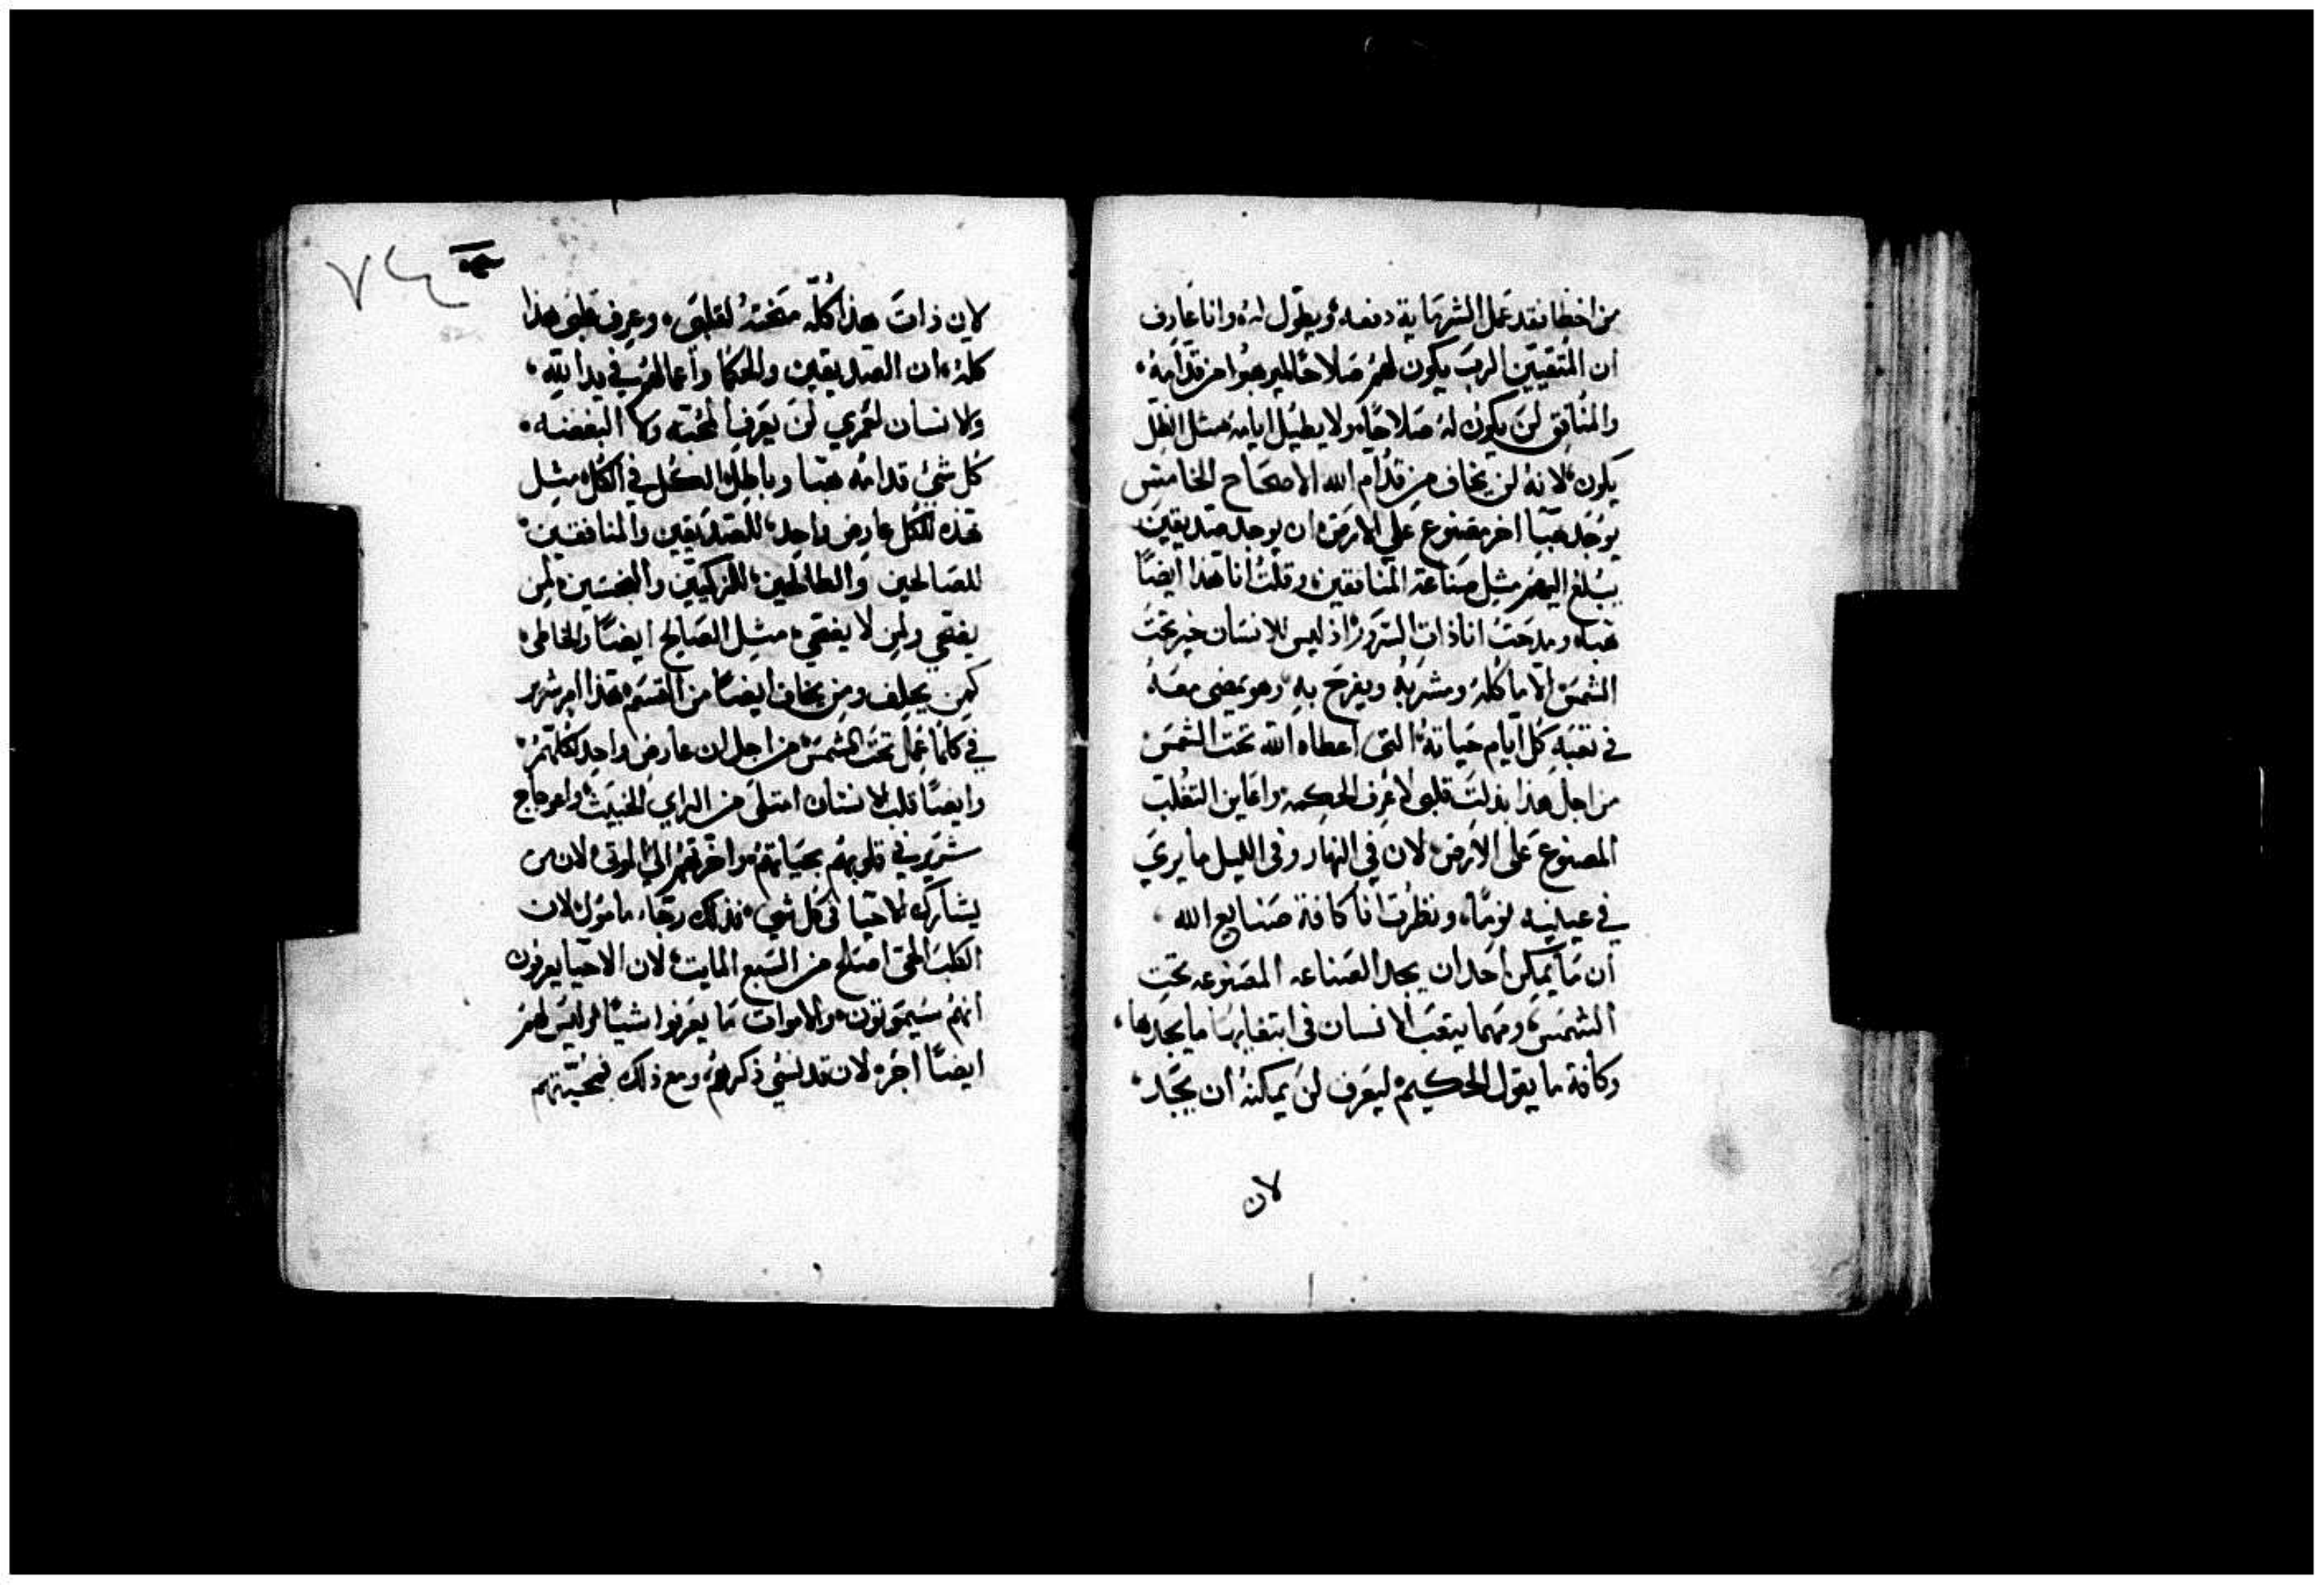 من اخطا فقد عمل الشر مايه دفعه ويطول له وانا عارف
ان المتقيين الرب يكون لهم صلاحًا ليرهبوا من قدامه
والمنافق لن يكون له صلاحًا ولا يطيل ايامه مثل الظل
يكون لانه لن يخاف من قدام الله الاصحاح الخامس
يوجد هبا اخر مصنوع علي الارض ان يوجد صديقين
يبلغ اليهم مثل صناعة المنافقين وقلت انا هذا ايضًا
هباء ومدحت انا ذات السرور اذ ليس للانسان خير تحت
الشمس الا ماكله ومشربه ويفرح به وهو يمضي معه
في تعبه كل ايام حياته التي اعطاه الله تحت الشمس
من اجل هذا بذلت قلبي لاعرف الحكمه واعاين التقلب
المصنوع على الارض لان في النهار وفي الليل ما يري
في عينيه نومًا ونظرت انا كافة صنايع الله
ان ما يمكن احد ان يجد الصناعه المصنوعه تحت
الشمس ومهما يتعب الانسان في ابتغايها ما يجدها
وكافة ما يقول الحكيم ليعرف لن يمكنه ان يجد
لان
٧٤
لان ذات هذا كله منحته لقلبي وعرف قلبي هذا
كله ان الصديقين والحكما واعمالهم في يد الله
ولا نسان لعمري لن يعرف المحبه ولا البغضه
كل شي قدامه هبا وباطل الكل في الكل مثل
هذه للكل عارض واحد للصديقين والمنافقين
للصالحين والطالحين للزكيين والنجسين لمن
يضحي ولمن لا يضحي مثل الصالح ايضًا والخاطي
كمن يحلف ومن يخاف ايضًا من القسم هذا امر شرير
في كلما عمل تحت الشمس من اجل ان عارض واحد لكلهم
وايضًا قلب الانسان امتلى من الراي الخبيث واعوجاج
شرير في قلوبهم بحياتهم واخرتهم الي الموتى لان من
يشارك الاحيا في كل شي فذلك رجاء مامول لان
الكلب الحي اصلح من السبع المايت لان الاحيا يعرفون
انهم سيموتون والاموات ما يعرفوا شيًا وليس لهم
ايضًا اجره لان قد نسي ذكرهم ومع ذلك فمحبتهم